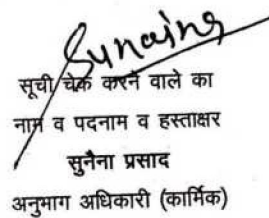 Sunaina
सूची चेक करने वाले का
नाम व पदनाम व हस्ताक्षर
सुनैना प्रसाद
अनुभाग अधिकारी (कार्मिक)